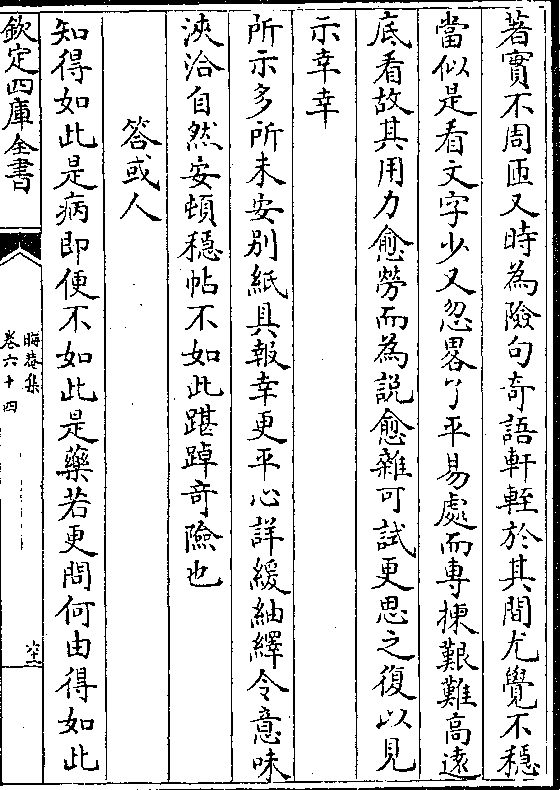 著實不周匝又時為險句奇語軒輊於其間尤覺不穩
當似是看文字少又忽畧了平易處而專揀艱難高逺
底看故其用力愈勞而為説愈雜可試更思之復以見
示幸幸
所示多所未安别紙具報幸更平心詳緩紬繹令意味
浹洽自然安頓穩帖不如此踸踔奇險也
答或人
知得如此是病即便不如此是藥若更問何由得如此
欽定四庫全書
晦菴集
卷六十四